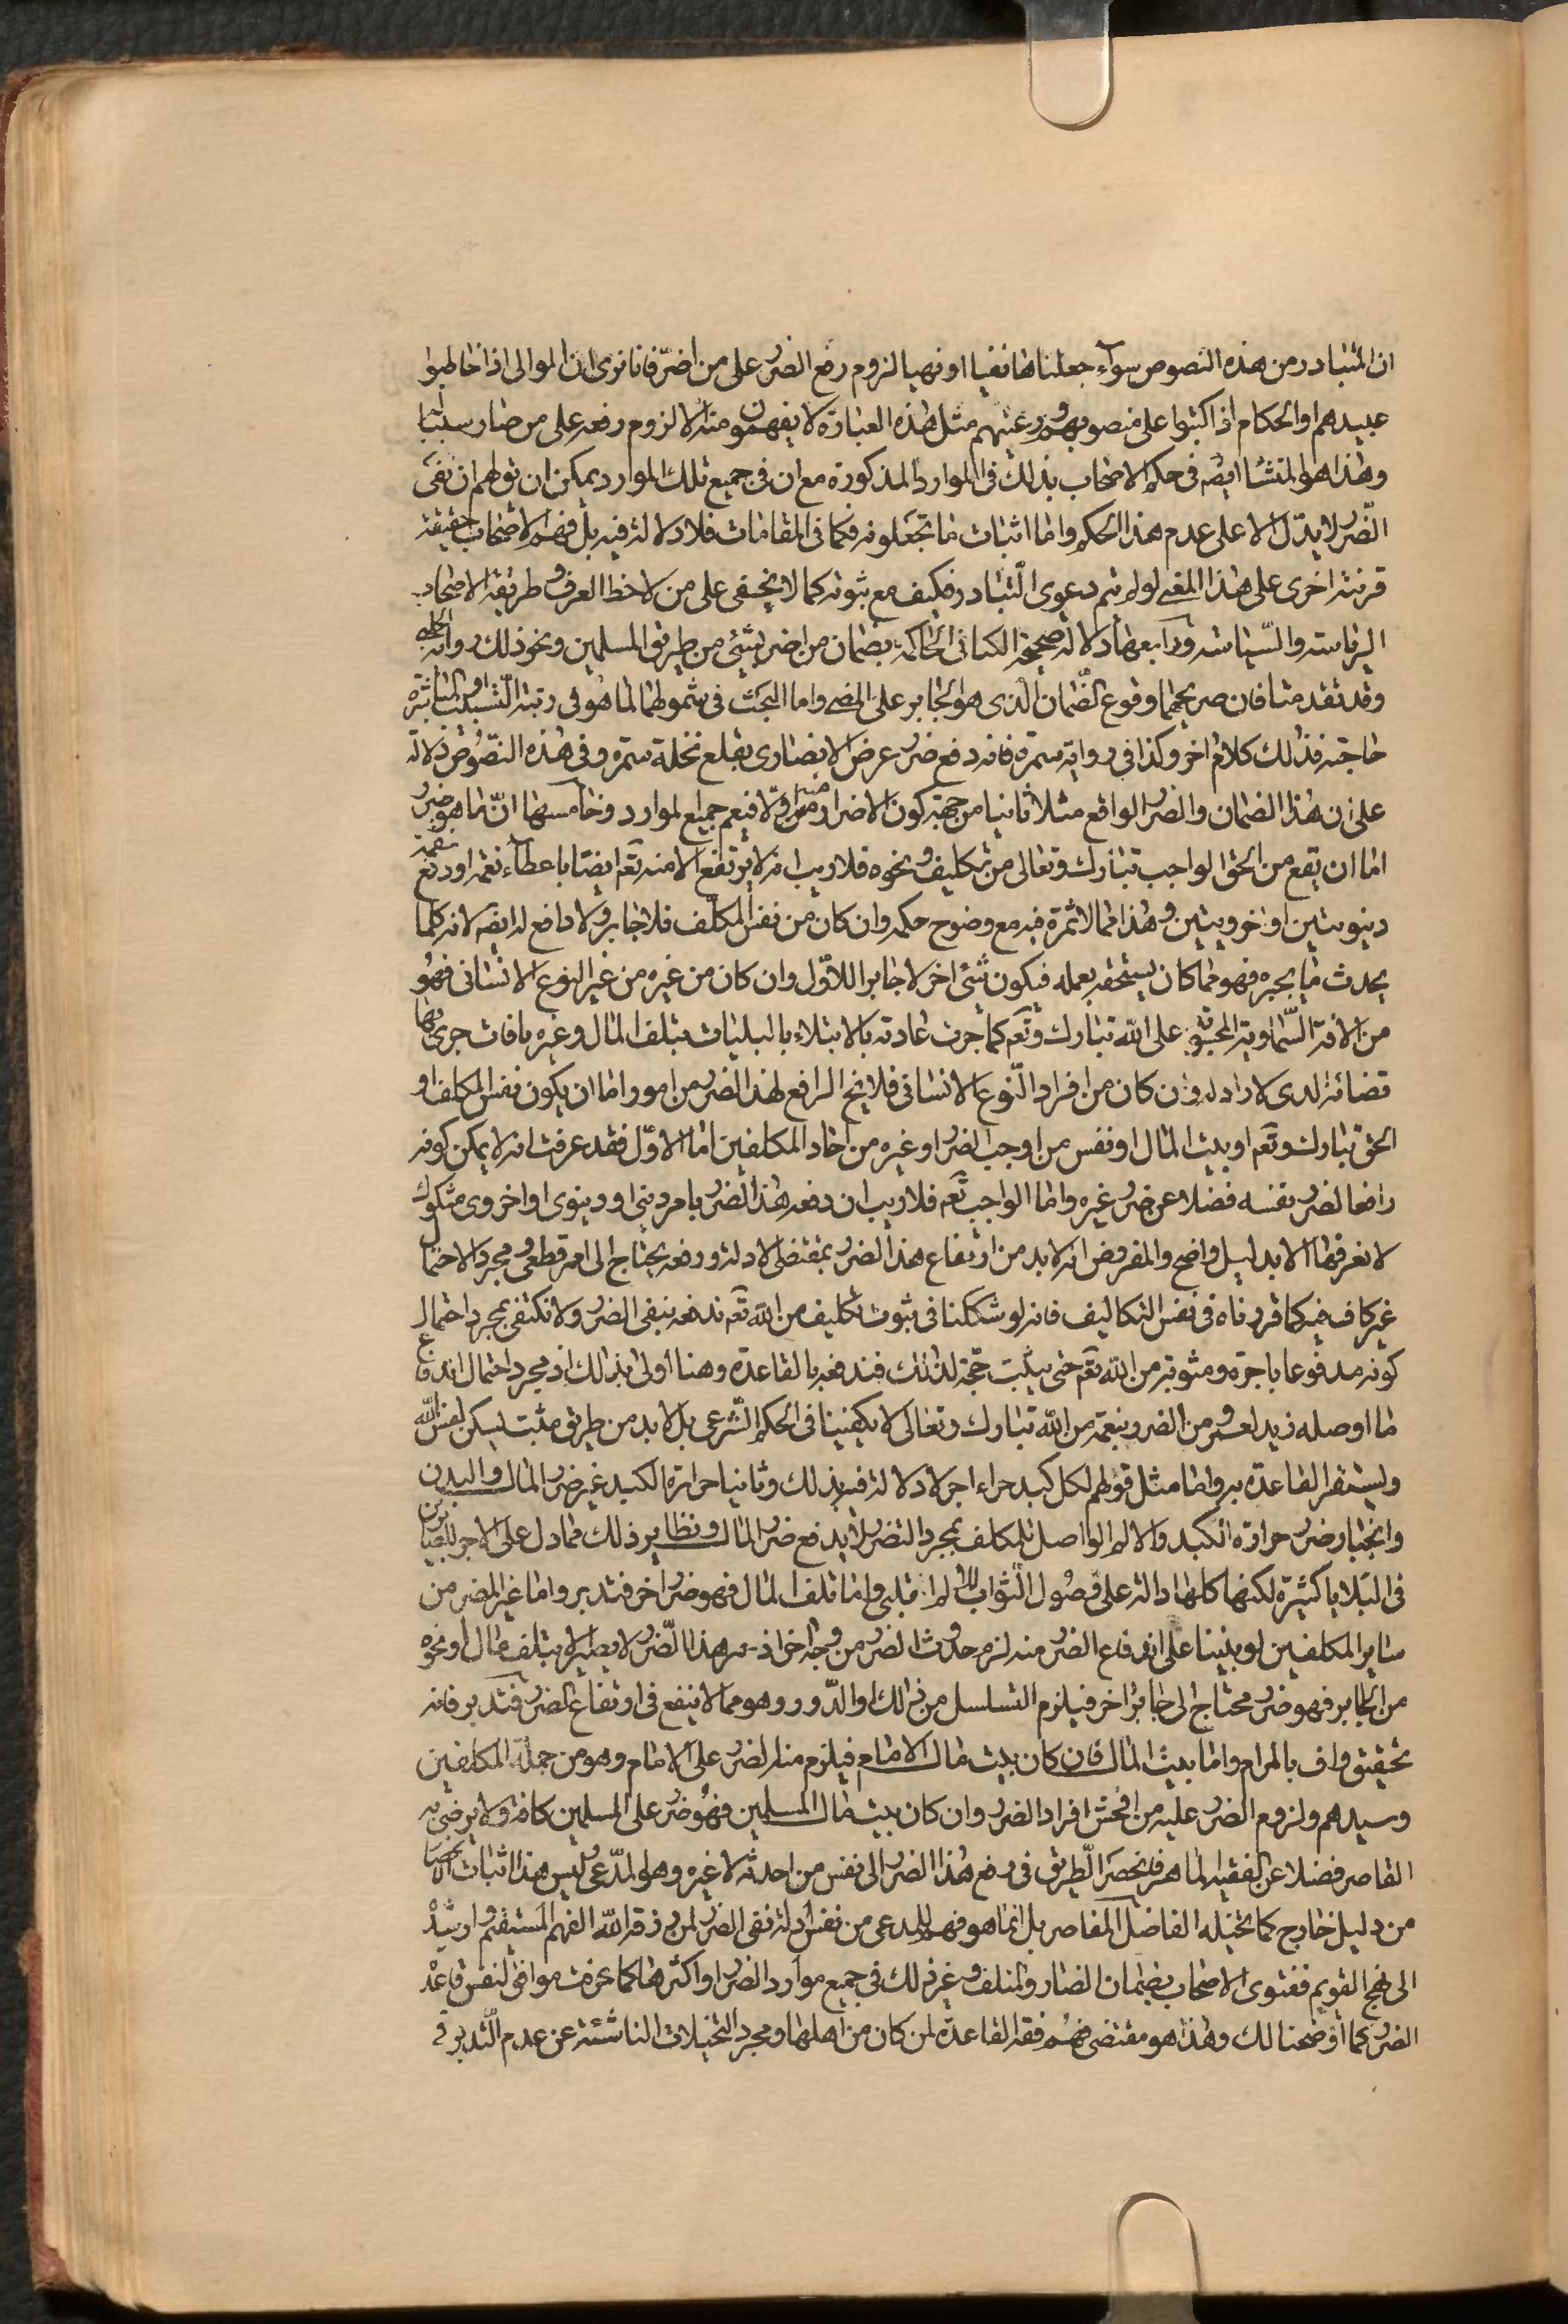 ان المتبادر من هذه النصوص سواء جعلناها نفيا او نهيا لزوم رفع الضرر على من اضر فانا نرى ان الموالى اذا خاطبوا
عبيدهم او الحكام اذا كتبوا على منصوبهم ورعيتهم مثل هذه العبارة لا يفهمون منه الا لزوم رفعه على من صار سببا
وهذا هو المنشأ ايضا فى حكم الاصحاب بذلك فى الموارد المذكورة مع ان فى جميع تلك الموارد يمكن ان نوهم ان نفى
الضرر لا يدل الا على عدم هذا الحكم واما اثبات ما تجعلونه فكما فى المقامات فلا دلالة فيه بل فهم الاصحاب حقيقة
قرينة اخرى على هذا المعنى لو لم يتم دعوى التبادر فكيف مع ثبوته كما لا يخفى على من لاحظ العرف وطريقة الاصحاب
الرياسة والسياسة ورابعها دلالة صحيحة الكنانى الحاكمة بضمان من اضر بشئ من طريق المسلمين ونحو ذلك رواية الحلبى
وقد تقدمتا فان صريحهما وقوع الضمان الذى هو الجابر على المضر واما البحث فى شمولهما لما هو فى رتبة التسبيب او المباشرة
خاصة فذلك كلام اخر وكذا فى رواية سمرة فانه دفع ضرر عرض الانصارى بقلع نخلة سمرة وفى هذه النصوص دلالة
على ان هذا الضمان والضرر الواقع مثلا ثانيا من جهة كون الاضرار منه اولا فيعم جميع الموارد وخامسها ان ما هو ضرر
اما ان يقع من الحق الواجب تبارك وتعالى من تكليف ونحوه فلا ريب انه لا يرتفع الا منه تعم ايضا باعطاء نعمة او دفع نقمة
دنيويتين او اخرويتين وهذا مما لا ثمرة فيه مع وضوح حكمه وان كان من نفس المكلف فلا جابر ولا دافع له ايضا لانه كلما
يحدث ما يجبره فهو مما كان يستحقه بعمله فيكون شئ اخر لا جابرا للاول وان كان من غيره من غير النوع الانسانى فهو
من الافة السماوية المحبوبة على الله تبارك وتعم كما جرت عادته بالابتلاء بالبليات بتلف المال وغيره بافات جرى بها
قضائه الذى لا راد له وان كان من افراد النوع الانسانى فلا يخ الرافع لهذا الضرر من امور اما ان يكون نفس المكلف او
الحق تبارك وتعم او بيت المال او نفس من اوجب الضرر او غيره من احاد المكلفين اما الاول فقد عرفت انه لا يمكن كونه
رافعا لضرر نفسه فضلا عن ضرر غيره واما الواجب تعم فلا ريب ان دفعه هذا الضرر بامر دينى او دنيوى او اخروى مشكوك
لا نعرفها الا بدليل واضح والمفروض انه لا بد من ارتفاع هذا الضرر بمقتضى الادلة ورفعه يحتاج الى امر قطعى ومجرد الاحتمال
غير كاف فيه كما قررناه فى نفس التكاليف فانه لو شككنا فى ثبوت تكليف من الله تعم ندفعه بنفى الضرر ولا نكتفى بمجرد احتمال
كونه مدفوعا باجرة ومثوبة من الله تعم حتى يثبت حجة لذلك فندفعه بالقاعدة وهنا اولى بذلك اذ مجرد احتمال اندفاع
ما اوصله زيد لعمرو من الضرر بنعمة من الله تبارك وتعالى لا يكفينا فى الحكم الشرعى بل لا بد من طريق مثبت ليسكن النفس اليه
وليستقر القاعدة به واما مثل قولهم لكل كبد حراء اجر لا دلالة فيه بذلك وثانيا حرارة الكبد غير ضرر المال والبدن
وانجبار ضرر حرارة الكبد والالم الواصل للمكلف بمجرد التضرر لا يدفع ضرر المال ونظاير ذلك مما دل على الاجر للصابرين
فى البلايا كثيرة لكنها كلها دالة على وصول الثواب للالم القلبى واما تلف المال فهو ضرر اخر فتدبر واما غير المضر من
ساير المكلفين لو بنينا على اندفاع الضرر منه لزم حدوث الضرر من وجه اخر اذ هذا الضرر لا يصير الا بتلف مال او نحوه
من الجابر فهو ضرر محتاج الى جابر اخر فيلزم التسلسل من ذلك او الدور وهو مما لا ينفع فى ارتفاع الضرر فتدبر فانه
تحقيق واف بالمرام واما بيت المال فان كان بيت مال الامام فيلزم منه الضرر على الامام وهو من جملة المكلفين
وسيدهم ولزوم الضرر عليه من افحش افراد الضرر وان كان بيت مال المسلمين فهو ضرر على المسلمين كافة ولا يرضى به
القاصر فضلا عن الفقيه الماهر فانحصر الطريق فى رفع هذا الضرر الى نفس من احدثه لا غيره وهو المدعى وليس هذا اثبات الانحصار
من دليل خارج كما تخيله الفاضل المعاصر بل انما هو فهم للمدعى من نفس ادلة نفى الضرر لمن رزقه الله الفهم المستقيم وارشده
الى نهج القويم ففتوى الاصحاب بضمان الضار والمتلف وغير ذلك فى جميع موارد الضرر او اكثرها كما عرفت موافق لنفس قاعدة
الضرر كما اوضحنا لك وهذا هو مقتضى فهم فقه القاعدة لمن كان من اهلها ومجرد التخيلات الناشئة عن عدم التدبر فى